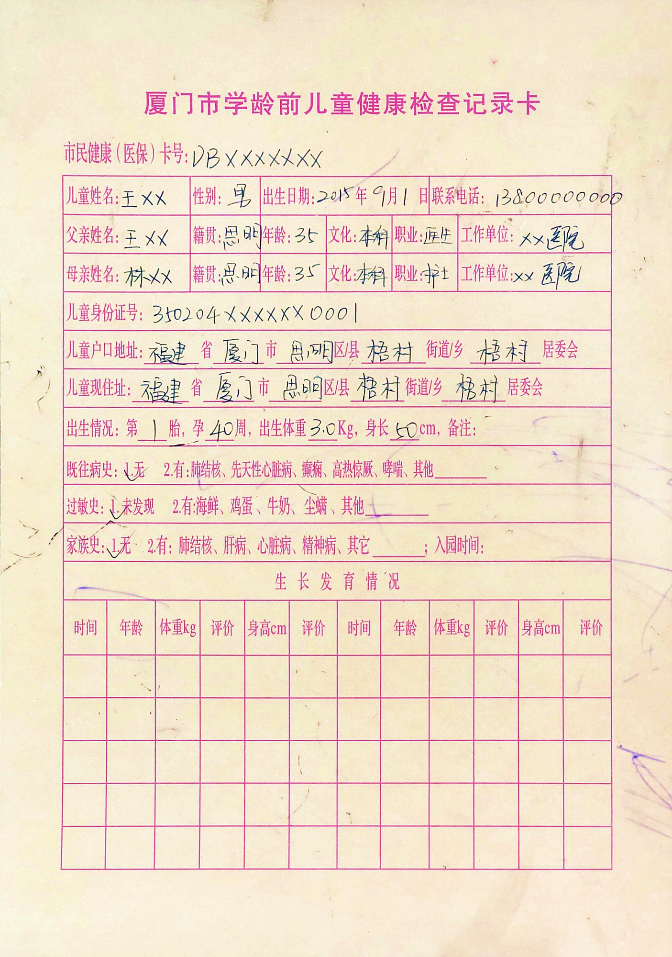 厦门市学龄前儿童健康检查记录卡
市民健康(医保)卡号:DBXXXXXXX
儿童姓名:王XX 性别:男 出生日期:2015年9月1日 联系电话:13800000000
父亲姓名:王XX 籍贯:思明 年龄:35 文化:本科 职业:医生 工作单位:XX医院
母亲姓名:林XX 籍贯:思明 年龄:35 文化:本科 职业:护士 工作单位:XX医院
儿童身份证号:350204XXXXXX0001
儿童户口地址:福建省厦门市思明区/县梧村街道/乡梧村居委会
儿童现住址:福建省厦门市思明区/县梧村街道/乡梧村居委会
出生情况:第1胎,孕40周,出生体重3.0Kg,身长50cm,备注:
既往病史:1.无 2.有:肺结核、先天性心脏病、癫痫、高热惊厥、哮喘、其他
过敏史:1.未发现 2.有:海鲜、鸡蛋、牛奶、尘螨、其他
家族史:1.无 2.有:肺结核、肝病、心脏病、精神病、其它 ;入园时间:
生长发育情况
时间 年龄 体重kg 评价 身高cm 评价 时间 年龄 体重kg 评价 身高cm 评价